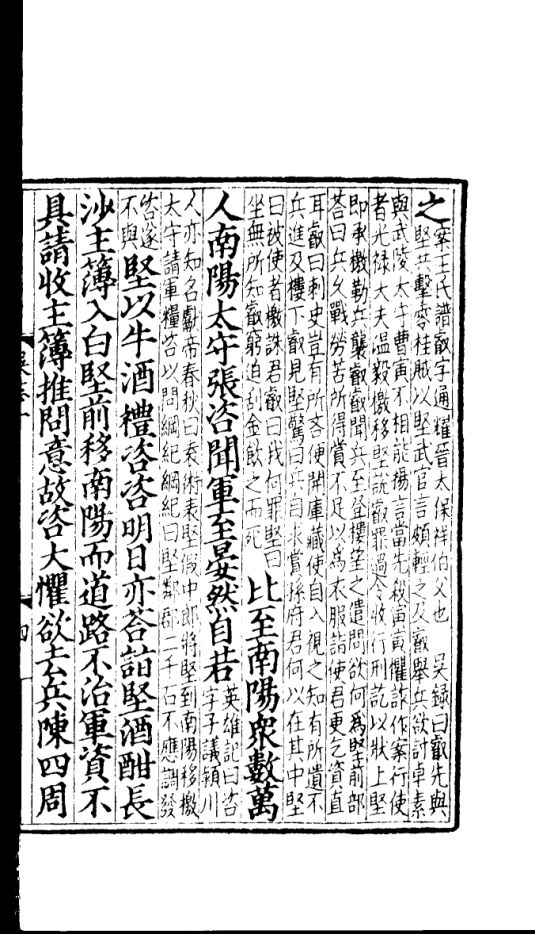 之案王氏譜叡字通耀晉太保祥伯父也 吳録曰叡先與
堅共擊零桂賊以堅武官言頗輕之及叡舉兵欲討卓素
與武陵太守曹寅不相能揚言當先殺寅寅懼詐作案行使
者光祿大夫溫毅檄移堅說叡罪過令收行刑訖以狀上堅
即承檄勒兵襲叡叡聞兵至登樓望之遣問欲何爲堅前部
荅曰兵久戰勞苦所得賞不足以爲衣服詣使君更乞資直
耳叡曰刺史豈有所吝便開庫藏使自入視之知有所遺不
兵進及樓下叡見堅驚曰兵自求賞孫府君何以在其中堅
曰被使者檄誅君叡曰我何罪堅曰
坐無所知叡窮迫刮金飲之而死
比至南陽衆數萬
人南陽太守張咨聞軍至晏然自若
英雄記曰咨
字子議潁川
人亦知名獻帝春秋曰袁術表堅假中郎將堅到南陽移檄
太守請軍糧咨以問綱紀綱紀曰堅鄰郡二千石不應調發
咨遂
不與
堅以牛酒禮咨咨明日亦荅詣堅酒酣長
沙主簿入白堅前移南陽而道路不治軍資不
具請收主簿推問意故咨大懼欲去兵陳四周
四